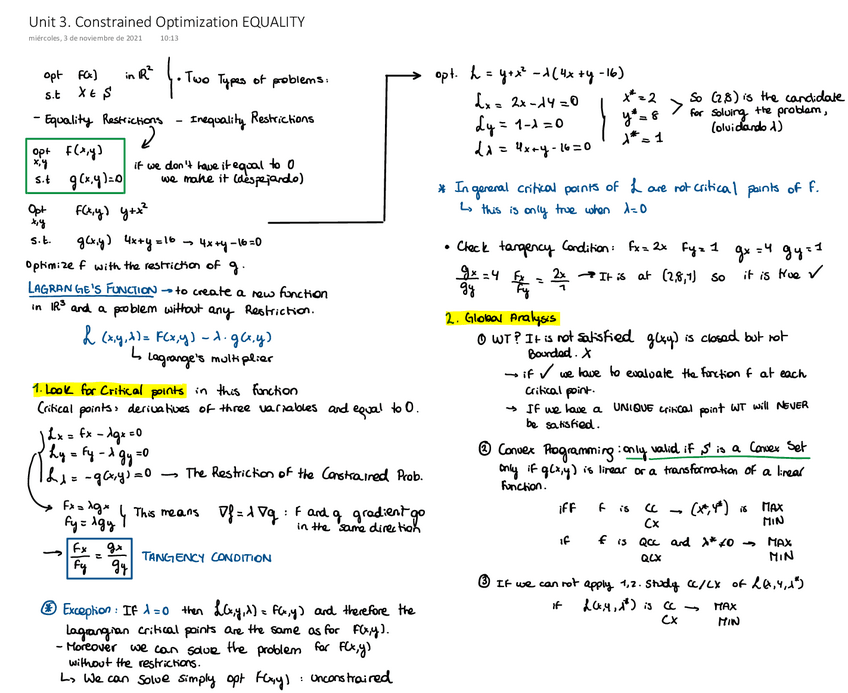 Unit 3. Constrained Optimization EQUALITY
miércoles, 3 de noviembre de 2021 10:13
opt F(x) in ℝ²
s.t X ∈ S
· Two Types of problems:
- Equality Restrictions - Inequality Restrictions
opt f(x,y)
x,y
s.t g(x,y)=0
if we don't have it equal to 0
we make it (despejando)
Opt F(x,y) y+x²
x,y
s.t. g(x,y) 4x+y=16 → 4x+y-16=0
Optimize f with the restriction of g.
LAGRANGE'S FUNCTION → to create a new function
in ℝ³ and a problem without any Restriction.
L (x,y,λ) = F(x,y) - λ· g(x,y)
↳ Lagrange's multiplier
1. Look for Critical points in this function
Critical points: derivatives of three variables and equal to 0.
Lx = Fx - λgx = 0
Ly = Fy - λ gy = 0
Lλ = -g(x,y) = 0 → The Restriction of the Constrained Prob.
Fx = λgx
Fy = λgy
This means ∇f = λ ∇g : F and g gradient go
in the same direction
→ Fx/Fy = gx/gy TANGENCY CONDITION
* Exception: If λ=0 then L(x,y,λ) = F(x,y) and therefore the
Lagrangian critical points are the same as for F(x,y).
- Moreover we can solve the problem for F(x,y)
without the restrictions.
↳ We can solve simply opt F(x,y) : unconstrained
opt. L = y+x² - λ(4x+y-16)
Lx = 2x - λ4 = 0
Ly = 1-λ = 0
Lλ = 4x+y-16=0
x* = 2
y* = 8
λ* = 1
So (2,8) is the candidate
for solving the problem,
(olvidando λ)
* In general critical points of L are not critical points of F.
↳ this is only true when λ=0
• Check tangency Condition: Fx=2x Fy=1 gx=4 gy=1
gx/gy = 4 Fx/Fy = 2x/1 → It is at (2,8,1) so it is true ✓
2. Global Analysis
① WT? It is not satisfied g(x,y) is closed but not
Bounded. X
→ if ✓ we have to evaluate the function f at each
critical point.
→ If we have a UNIQUE critical point WT will NEVER
be satisfied.
② Convex Programming: only valid if S is a Convex Set
only if g(x,y) is linear or a transformation of a linear
function.
iff f is CC → (x*,y*) is MAX
CX MIN
if f is QCC and λ*≠0 → MAX
QCX MIN
③ If we can not apply 1,2. Study CC/CX of L(x,y,λ*)
if L(x,y,λ*) is CC → MAX
CX MIN